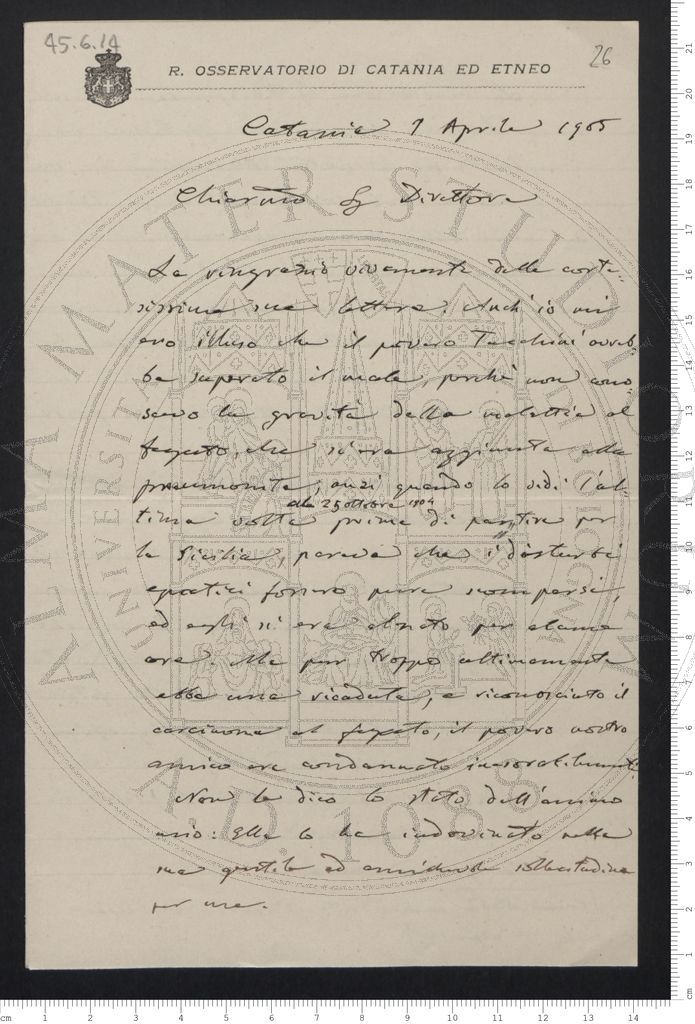 45.6.14
26
R. OSSERVATORIO DI CATANIA ED ETNEO
Catania 1 Aprile 1905
Chiarmo Sg Direttore
La ringrazio vivamente della corte-
sissima sua lettera. Anch'io mi
ero illuso che il povero Tacchini avreb-
be superato il male, perchè non cono-
scevo la gravità della malattia al
fegato, che si era aggiunta alla
pneumonite; anzi quando lo vidi l'ul-
alli 25 ottobre 1904
tima volta prima di partire per
la Sicilia, pareva che i disturbi
epatici fossero pure scomparsi,
ed egli si era alzato per alcune
ore. Ma pur troppo ultimamente
ebbe una ricaduta, e riconosciuto il
carcinoma al fegato, il povero nostro
amico era condannato inesorabilmente.
Non le dico lo stato dell'animo
mio: Ella lo ha indovinato nella
sua gentile ed amichevole sollecitudine
per me.
ALMA MATER STUDIORUM
UNIVERSITÀ
BOLOGNA
A.D. 1088
cm 1 2 3 4 5 6 7 8 9 10 11 12 13 14
21
20
19
18
17
16
15
14
13
12
11
10
9
8
7
6
5
4
3
2
1
cm